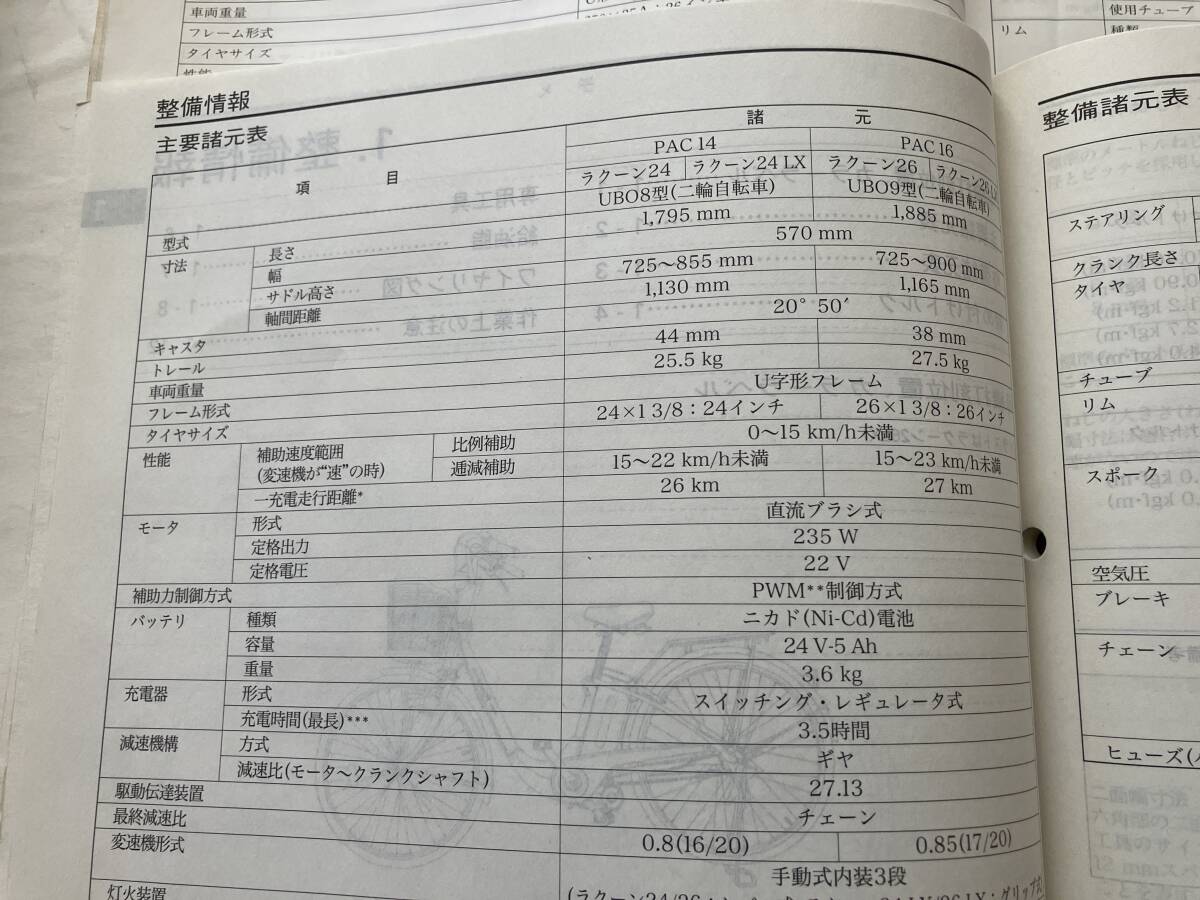 車両重量
フレーム形式
タイヤサイズ
使用チューブ
リム 種類
整備情報
主要諸元表
項 目 諸 元
PAC 14 PAC 16
ラクーン24 ラクーン24 LX ラクーン26 ラクーン26 LX
型式 UBO8型(二輪自転車) UBO9型(二輪自転車)
寸法 長さ 1,795 mm 1,885 mm
幅 570 mm
サドル高さ 725〜855 mm 725〜900 mm
軸間距離 1,130 mm 1,165 mm
キャスタ 20° 50′
トレール 44 mm 38 mm
車両重量 25.5 kg 27.5 kg
フレーム形式 U字形フレーム
タイヤサイズ 24×1 3/8：24インチ 26×1 3/8：26インチ
性能 補助速度範囲 (変速機が“速”の時) 比例補助 0〜15 km/h未満
逓減補助 15〜22 km/h未満 15〜23 km/h未満
一充電走行距離* 26 km 27 km
モータ 形式 直流ブラシ式
定格出力 235 W
定格電圧 22 V
補助力制御方式 PWM**制御方式
バッテリ 種類 ニカド(Ni-Cd)電池
容量 24 V-5 Ah
重量 3.6 kg
充電器 形式 スイッチング・レギュレータ式
充電時間(最長)*** 3.5時間
減速機構 方式 ギヤ
減速比(モータ〜クランクシャフト) 27.13
駆動伝達装置 チェーン
最終減速比 0.8(16/20) 0.85(17/20)
変速機形式 手動式内装3段
灯火装置
整備諸元表
ステアリング
クランク長さ
タイヤ
チューブ
リム
スポーク
空気圧
ブレーキ
チェーン
ヒューズ(